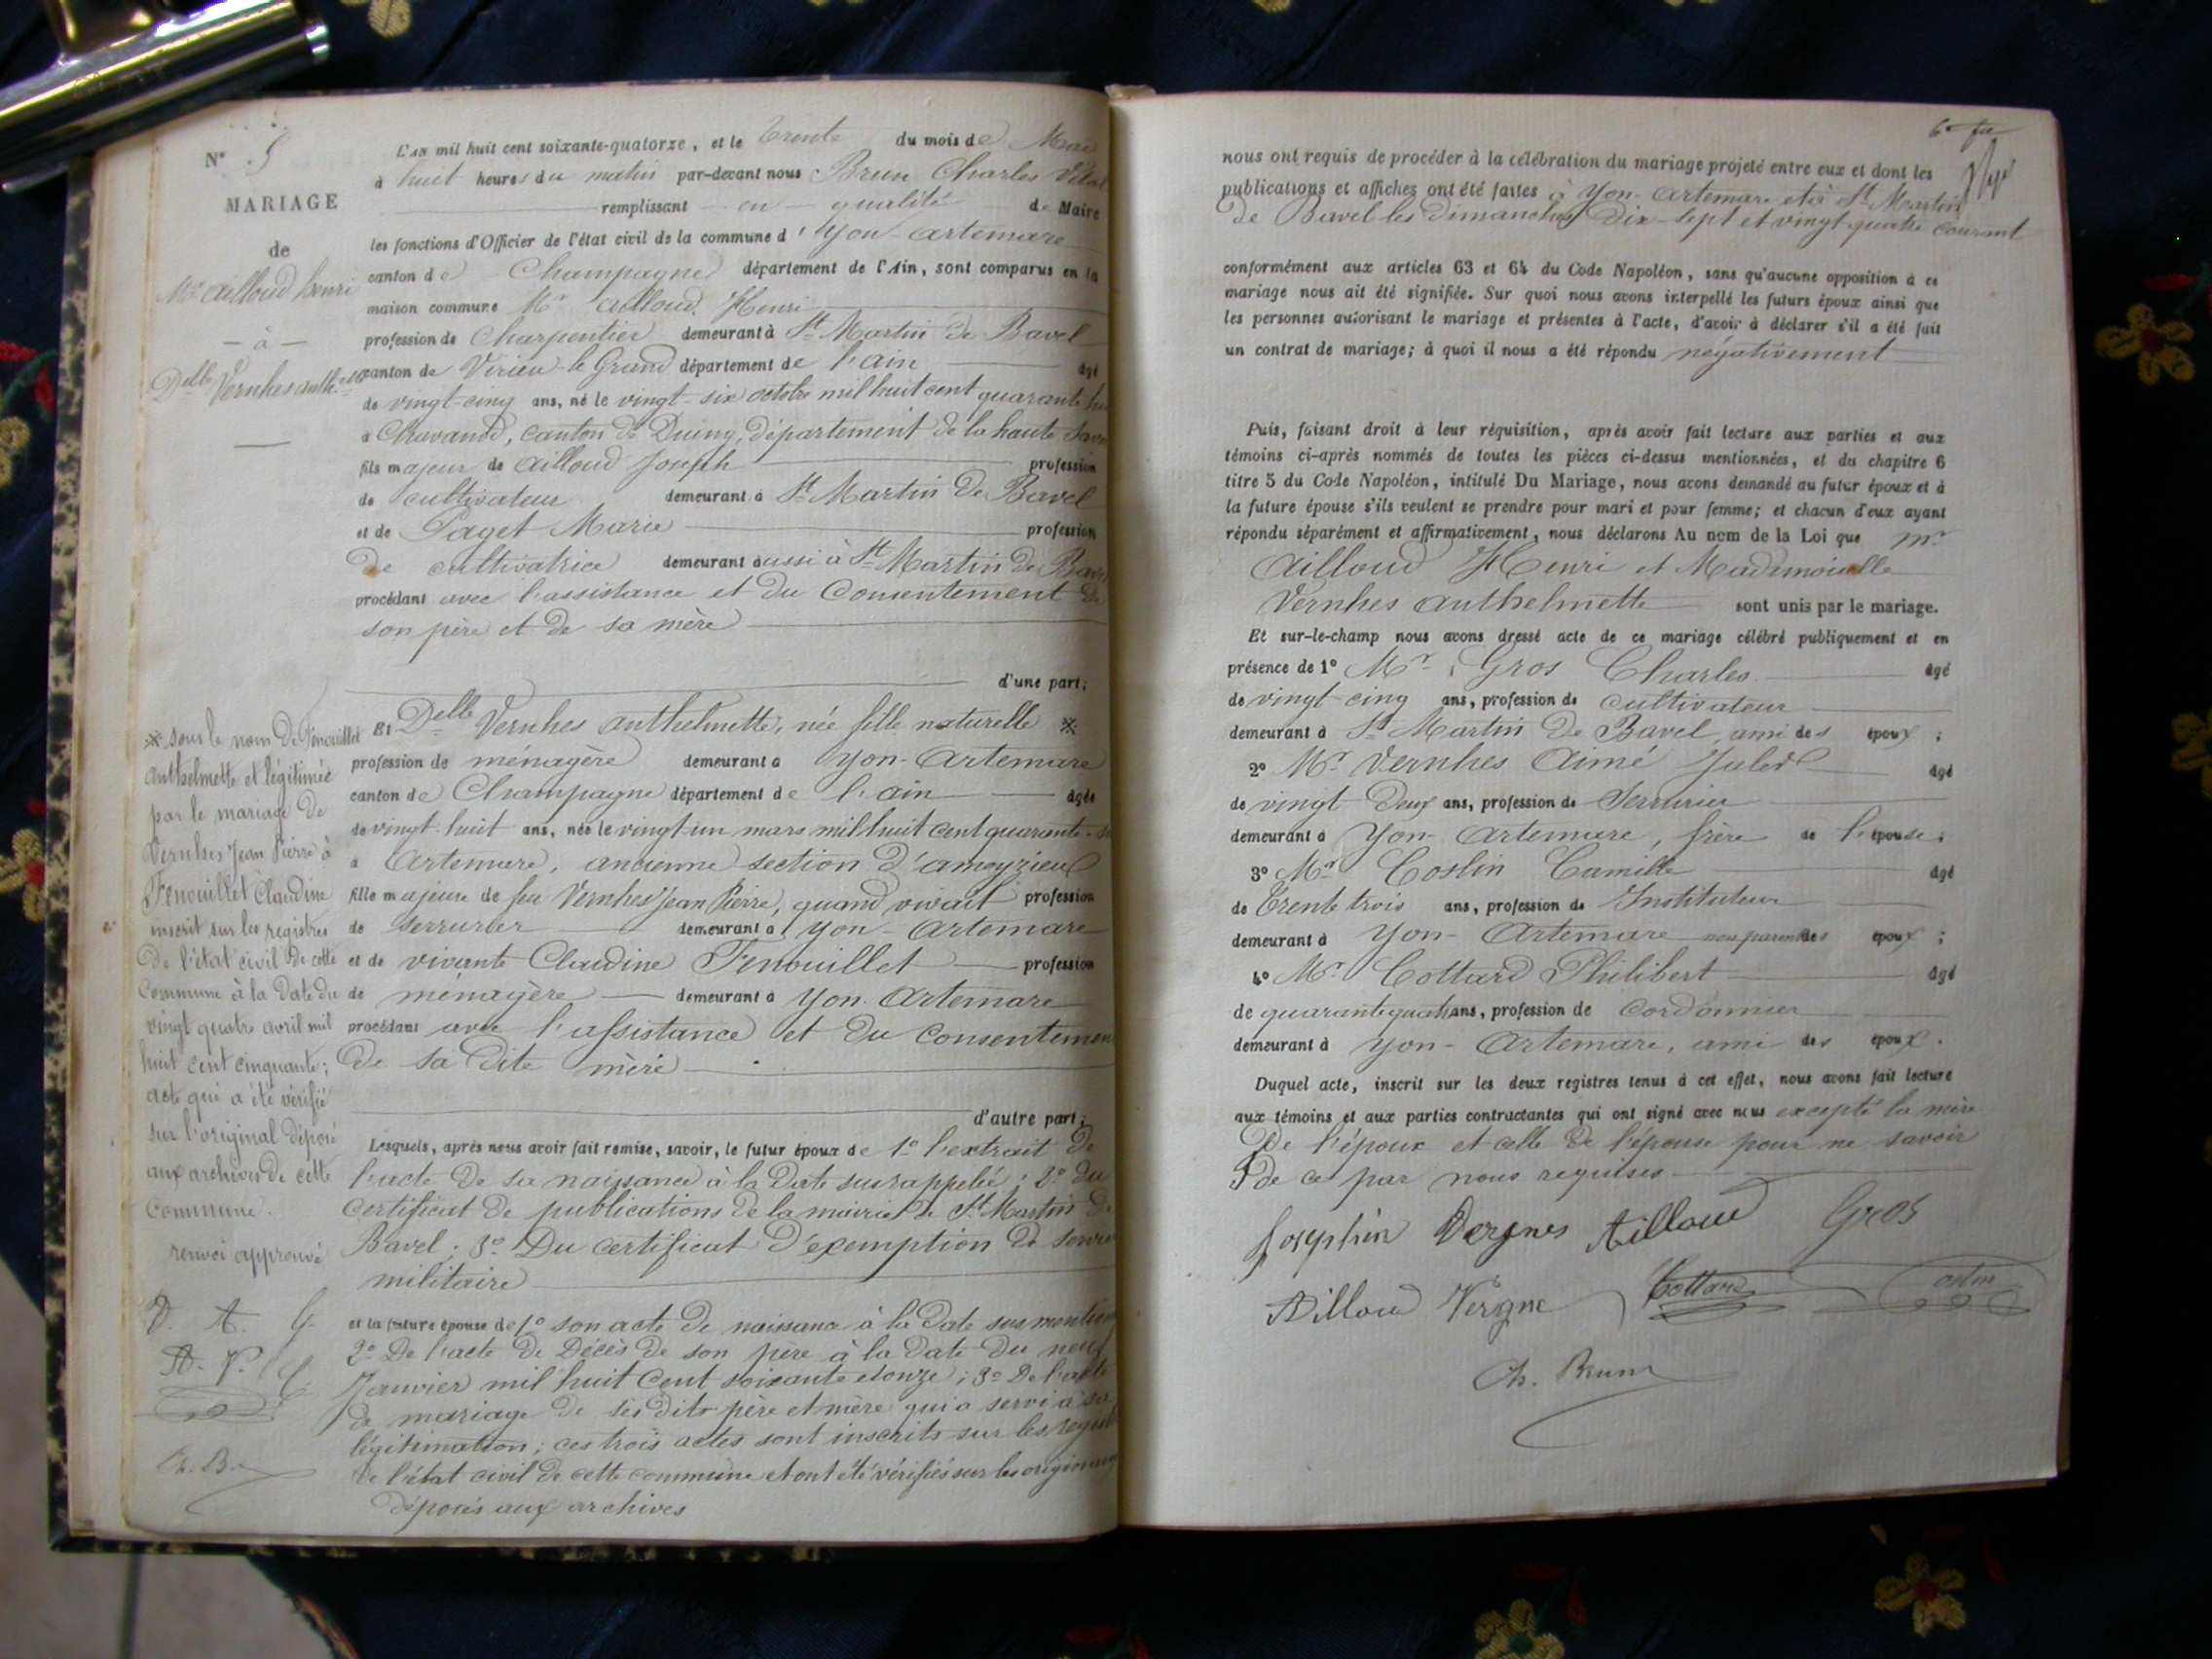 N° 5
MARIAGE
de
Mr Ailloud henri
— à —
Delle Vernhes anth.elte
L'AN mil huit cent soixante-quatorze, et le Trente du mois de Mai
à huit heures du matin par-devant nous Brun Charles Vital
remplissant en qualité de Maire
les fonctions d'Officier de l'état civil de la commune d' Yon-artemare
canton de Champagne département de l'Ain, sont comparus en la
maison commune Mr ailloud Henri
profession de Charpentier demeurant à St Martin de Bavel
canton de Virieu-le Grand département de l'ain âgé
de vingt-cinq ans, né le vingt-six octobre mil huit cent quarante hu
à Chavanod, canton de Duing, département de la haute Savo
fils majeur de ailloud Joseph profession
de cultivateur demeurant à St Martin de Bavel
et de Paget Marie profession
de cultivatrice demeurant aussi à St Martin de Bavel
procédant avec l'assistance et du Consentement de
son père et de sa mère
d'une part;
Et Delle Vernhes anthelmette, née fille naturelle ※
profession de ménagère demeurant à Yon-Artemare
canton de Champagne département de l'ain âgée
de vingt-huit ans, née le vingt-un mars mil huit cent quarante-si
à Artemare, ancienne section d'amoyzieu
fille majeure de feu Vernhes Jean Pierre, quand vivait profession
de serrurier demeurant à Yon-Artemare
et de vivante Claudine Fenouillet profession
de ménagère demeurant à Yon-Artemare
procédant avec l'assistance et du consentemen
de sa dite mère
d'autre part;
Lesquels, après nous avoir fait remise, savoir, le futur époux de 1° l'extrait de
l'acte de sa naissance à la date susrappelée; 2° du
certificat de publications de la mairie de St Martin de
Bavel; 3° Du certificat d'exemption de servic
militaire
et la future épouse de 1° son acte de naissance à la date sus mention
2° De l'acte de Décès de son père à la date du neuf
Janvier mil huit cent soixante et onze; 3° De l'acte
de mariage de ses dits père et mère qui a servi à sa
légitimation; ces trois actes sont inscrits sur les regist
de l'état civil de cette commune et ont été vérifiés sur les originaux
déposés aux archives
※ sous le nom de Fenouillet
anthelmette et légitimée
par le mariage de
Vernhes Jean Pierre à
Fenouillet Claudine
inscrit sur les registres
de l'état civil de cette
Commune à la date du
vingt quatre avril mil
huit cent cinquante;
acte qui a été vérifié
sur l'original déposé
aux archives de cette
Commune.
renvoi approuvé
V. A. G.
A. V. C.
Ch. B.
6e fet
nous ont requis de procéder à la célébration du mariage projeté entre eux et dont les
publications et affiches ont été faites à Yon-Artemare et à St Martin
de Bavel les dimanches Dix-sept et vingt-quatre courant
conformément aux articles 63 et 64 du Code Napoléon, sans qu'aucune opposition à ce
mariage nous ait été signifiée. Sur quoi nous avons interpellé les futurs époux ainsi que
les personnes autorisant le mariage et présentes à l'acte, d'avoir à déclarer s'il a été fait
un contrat de mariage; à quoi il nous a été répondu négativement
Puis, faisant droit à leur réquisition, après avoir fait lecture aux parties et aux
témoins ci-après nommés de toutes les pièces ci-dessus mentionnées, et du chapitre 6
titre 5 du Code Napoléon, intitulé Du Mariage, nous avons demandé au futur époux et à
la future épouse s'ils veulent se prendre pour mari et pour femme; et chacun d'eux ayant
répondu séparément et affirmativement, nous déclarons Au nom de la Loi que Mr
Ailloud Henri et Mademoiselle
Vernhes anthelmette sont unis par le mariage.
Et sur-le-champ nous avons dressé acte de ce mariage célébré publiquement et en
présence de 1° Mr Gros Charles âgé
de vingt-cinq ans, profession de cultivateur
demeurant à St Martin de Bavel, ami des époux;
2° Mr Vernhes Aimé Jules âgé
de vingt-deux ans, profession de Serrurier
demeurant à Yon-Artemare, frère de l'épouse;
3° Mr Costin Camille âgé
de Trente trois ans, profession de Instituteur
demeurant à Yon-Artemare non parent des époux;
4° Mr Cottard Philibert âgé
de quarante quatre ans, profession de cordonnier
demeurant à Yon-Artemare, ami des époux.
Duquel acte, inscrit sur les deux registres tenus à cet effet, nous avons fait lecture
aux témoins et aux parties contractantes qui ont signé avec nous excepté la mère
de l'époux et celle de l'épouse pour ne savoir
de ce par nous requises
Josephin Vergnes Ailloud Gros
Ailloud Vergne Cottard Costin
Ch. Brun